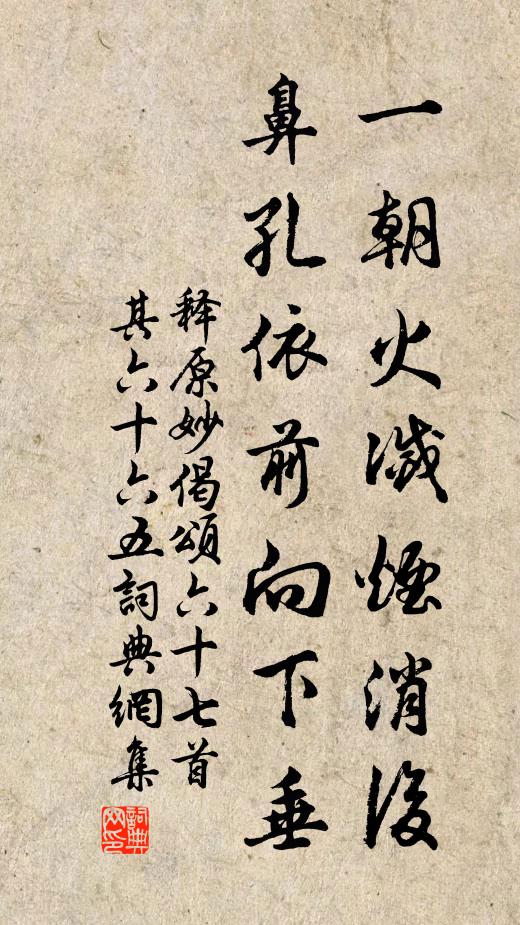 一朝火滅煙消後
鼻孔依前向下垂
释原妙偈頌六十七首
其六十六五詞典網集
詞典
网印